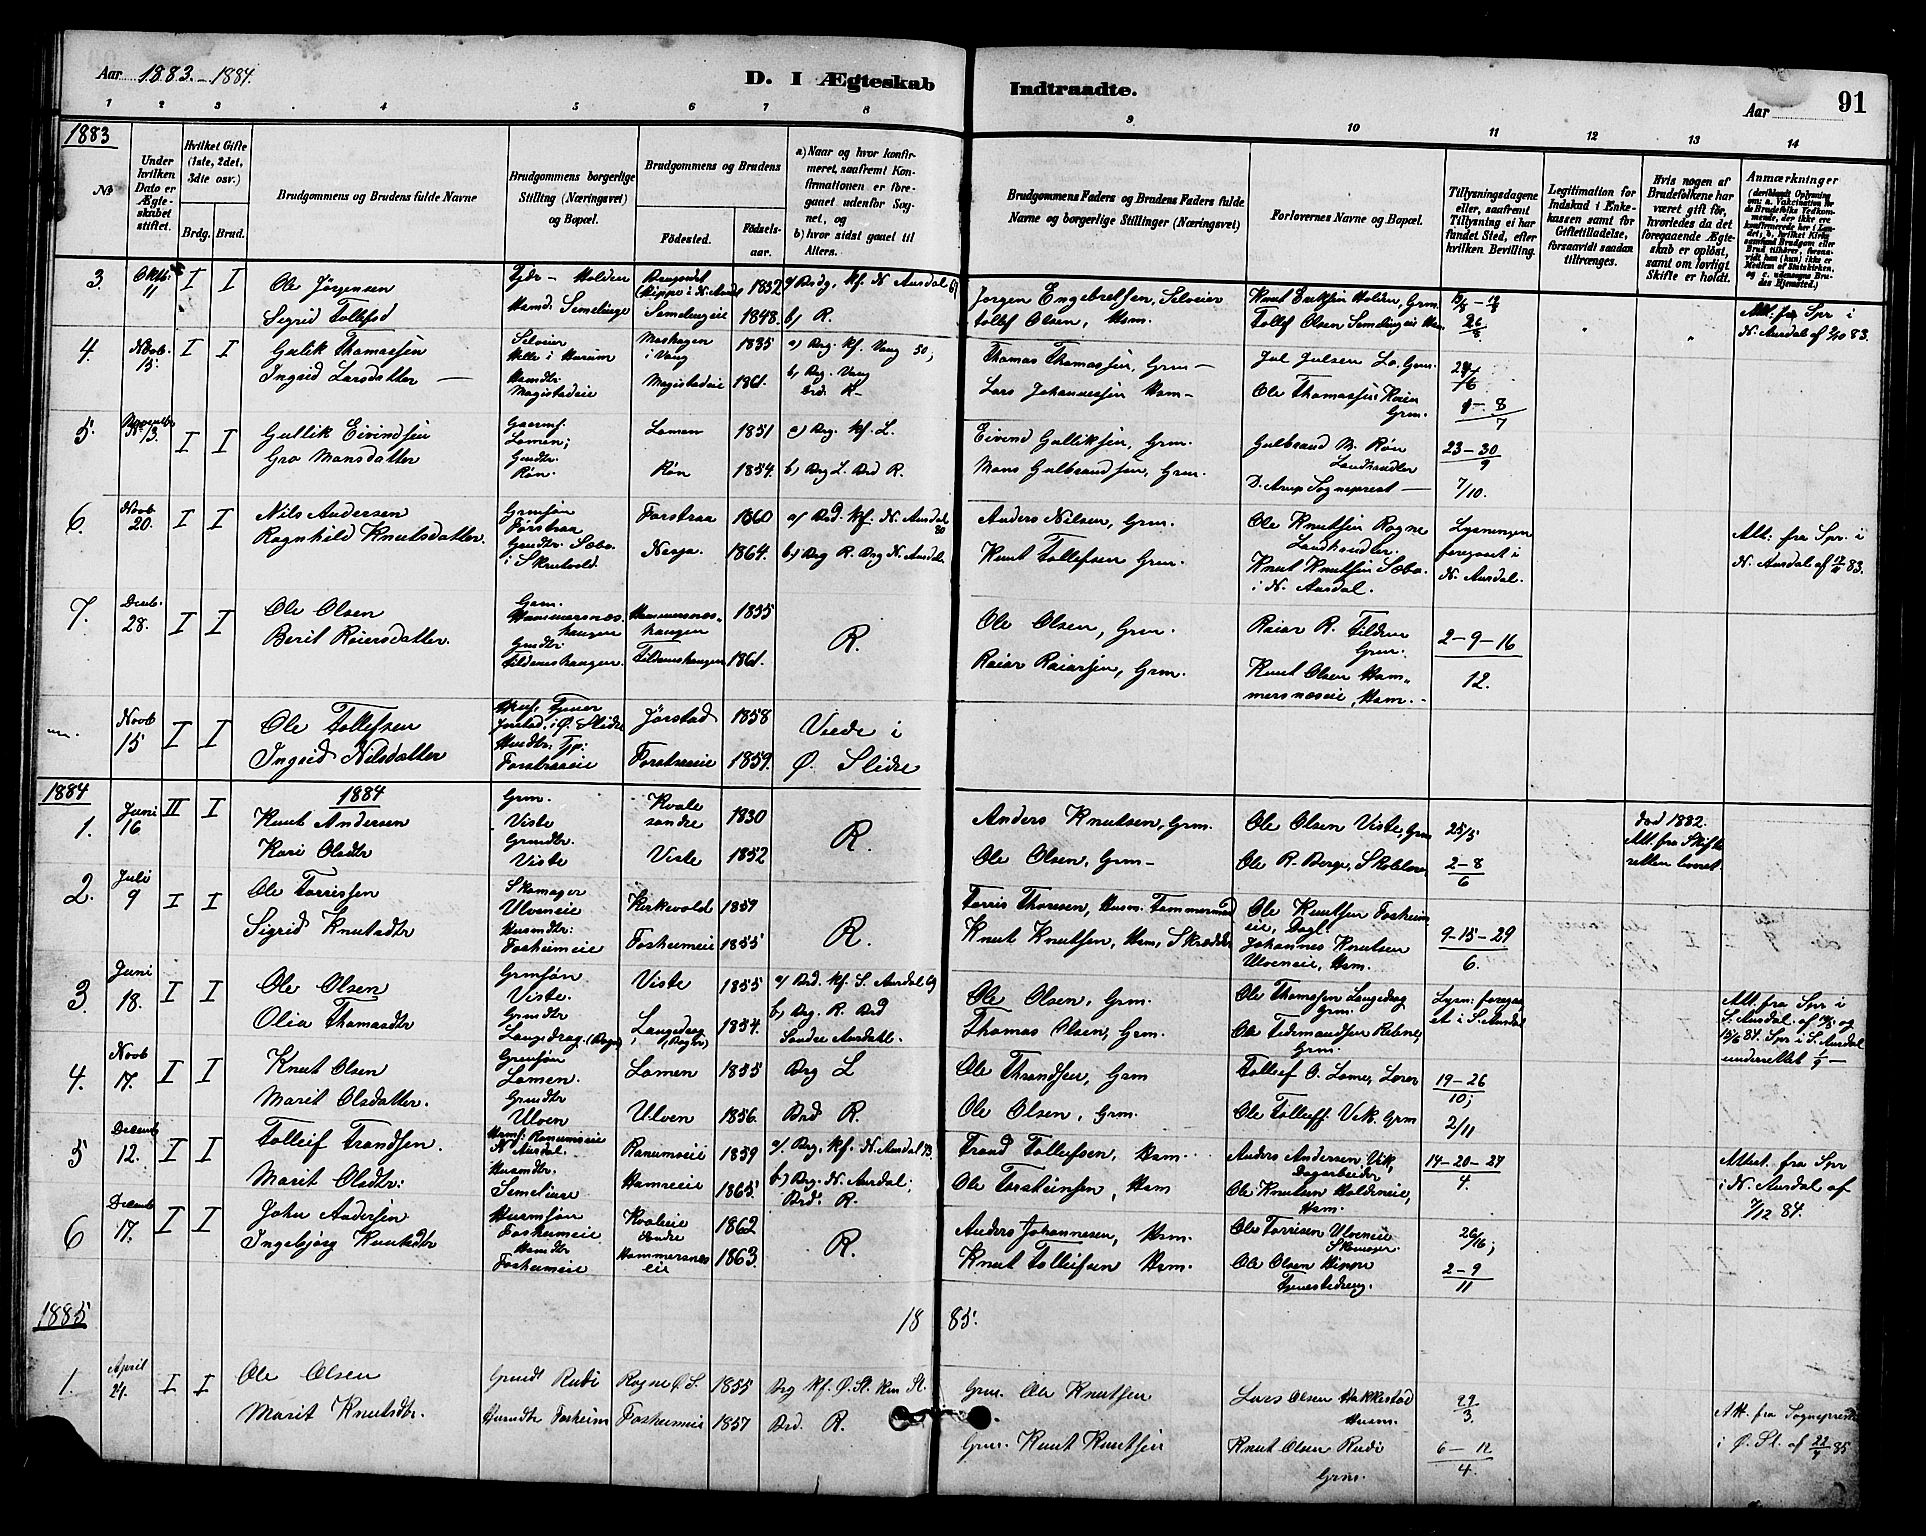 Aar 1883.-1884.
D. I Ægteskab Indtraadte.
Aar 91
1 2 3 4 5 6 7 8 9 10 11 12 13 14
1883
No
Under hvilken Dato er Ægteskabet stiftet.
Hvilket Gifte (1ste, 2det, 3die osv.)
Brdg. Brud.
Brudgommens og Brudens fulde Navne
Brudgommens borgerlige Stilling (Næringsvei) og Bopæl.
Brudgommens og Brudens
Fødested. Fødselsaar.
a) Naar og hvor konfirmeret, saafremt Konfirmationen er foregaaet udenfor Sognet, og
b) hvor sidst gaaet til Alters.
Brudgommens Faders og Brudens Faders fulde Navne og borgerlige Stillinger (Næringsvei)
Forlovernes Navne og Bopæl.
Tillysningsdagene eller, saafremt Tillysning ei har fundet Sted, efter hvilken Bevilling.
Legitimation for Indskud i Enkekassen samt for Giftetilladelse, forsaavidt saadan tiltrænges.
Hvis nogen af Brudefolkene har været gift før, hvorledes da det foregaaende Ægteskab er opløst, samt om lovligt Skifte er holdt.
Anmærkninger
3. Oktb. 11 I I
Ole Jörgensen
Sigrid Tollefsd
Holden
Hamd. Semelinge
Semelengeie
1852
1848.
a) Brdg. kf. N. Aurdal 67
b) R.
Jorgen Engebretsen, Selveier
Tollef Olsen, Hsm.
Knut Eriksen Holden, Grm.
Tollef Olsen Semelengeie Hsm
Att. fra Spr i
N. Aurdal af 2/10 83.
4. Novb. 15. I I
Gulik Thomassen
Ingrid Larsdatter —
Selveier
Helle i Hurum
Hsmdtr.
Magistadeie
i Vang
Magistadeie
1835
1861.
a) Brg. kf. Vang 50,
b) Brg. Vang
Brd. R.
Thomas Thomassen, Grm —
Lars Johannessen Hsm —
Jul Julsen Lo. Grm.
Ole Thomassen
Grm.
1 – 8
7
5. 13. I I
Gullik Eivindsen
Gro Monsdatter
Gaarmf.
Lomen;
Gmdtr.
Røn.
Lomen
Røn
1851
1854.
a) Brg. kf. L.
b) Brg L. Brd R.
Eivind Gulliksen, Grm.
Mons Gulbrandsen, Grm.
Gulbrand M. Røn
Landhandler
D. Arup Sogneprest —
23 – 30
9
7/10.
6. Novb 20. I I
Nils Andersen
Ragnhild Knutsdatter.
Grmsøn
Førstraa
Gmdtr. Sæbo.
i Skrutvold.
Forstraa
Nesja.
1860
1864.
a) Brd. kf. N. Aurdal 80
b) Brg R. Brg N. Aurdal.
Anders Nilsen, Grm.
Knut Tollefsen Grm.
Ole Knutsen Rogne
Landhandler.
Knut Knutsen Sæbo.
i N. Aurdal.
Lysningen
foregaaet i
N. Aurdal.
Att: fra Spr. i
N. Aurdal af 83.
7. Decb. 28. I I
Ole Olsen
Berit Roiersdatter.
Grm.
Hammersnæs
haugen
Gmdtr
Fildenshaugen.
Hammersnæs-
haugen
Fildenshaugen
1855
1861.
R.
Ole Olsen, Grm.
Roiar Roiarsen, Grm.
Roiar R. Filden
Grm.
Knut Olsen Ham-
mersnæseie, Hsm.
2 – 9 – 16
12.
Novb 15 I I
Ole Tollefsen
Ingrid Nilsdatter
Jorstad i Ø. Slidre
Forstraaeie
Jørstad
Forstraaeie
1858
1859.
Viede i
Ø. Slidre
1884 1884
1. Juni 16 II I
Knut Andersen
Kari Olsdtr
Grm.
Viste
Grmdtr.
Viste
Kvale
søndre
Viste
1830
1852
R.
Anders Knutsen, Grm.
Ole Olsen, Grm —
Ole Olsen Viste, Grm
Ole R. Berge, Skolelærer
25/5
2 – 8
6
død 1882.
Att. fra Skifte
retten
2. Juli 9 I I
Ole Torrissen
Sigrid Knutsdtr
Skomager
Ulveneie
Husmdtr:
Fosheimeie
Kirkevold
Fosheimeie
1859
1855
R.
Torris Thoresen, Husm. Tømmermand
Knut Knutsen, Hsm, Skrædder
Ole Knutsen Fosheim
eie, Dagl.
Johannes Knutsen
Ulveneie, Hsm.
9 – 15 – 29
6.
3 Juni 18. I I
Ole Olsen
Olia Thomasdtr
Grmsøn
Viste.
Grmdtr
Langedrag (Bagn)
Viste
Langedrag
(Bagn)
1855
1854.
a) Brd. kf. S. Aurdal 69
b) Brg. R. Brd
Søndre Aurdal.
Ole Olsen, Grm.
Thomas Olsen, Grm.
Ole Thomssen Langedrag
Grm.
Ole
Grm.
Lysn: foregaa
et i S. Aurdal
Att. fra Spr i
S. Aurdal af og
15/6 84. Spr i S. Aurdal
underrettet
4. Novb 17. I I
Knut Olsen
Marit Olsdatter.
Grmsøn
Lomen.
Grmdtr
Ulven
Lomen
Ulven
1855
1856.
Brg L
Brd R.
Ole Throndsen, Grm
Ole Olsen, Grm.
Tolleif O. Lome, Lærer
Ole Tolleiff. Vik, Grm
19 – 26
10;
2/11
5 Decemb 12. I I
Tolleif Trondsen.
Marit Olsdtr:
Hsmf. Ranumseie
N Aurdal.
Husmdtr.
Semelinge
Ranumseie
Hamreeie
1859
1865.
a) Brg. kf. N. Aurdal 73.
b) Brg: N. Aurdal;
Brd: R.
Trond Tollefsen, Hsm.
Ole Torsteinsen, Hsm
Anders Andersen Vik,
Dagarbeider
Ole Knutsen Holdeneie,
Hsm.
14 – 20 – 27
4.
Attest. fra Spr
i N. Aurdal af
7/12 84.
6 Decemb 17. I I
John Andersen
Ingebjørg Knutsdtr
Husmsøn
Fosheimeie
Hsmdtr
Fosheimeie
Kvaleeie
søndre
Hammersnæs
eie
1862
1863.
R.
Anders Johannesen, Hsm.
Knut Tolleifsen Hsm.
Ole Torrisen Ulveneie
Skomager.
Ole Olsen Hippe
Tjenestedreng.
26/16;
2 – 9
11
1885
18 85.
1. April 21. I I
Ole Olsen
Marit Knutsdtr.
Rudi
Husmdtr Fosheim
Rogne Ø. S.
Fosheimeie
1855
1857
Brg kf. Ø. Sl.
Brd. R.
Grm. Ole Knutsen
Grm. Knut Knutsen
Lars Olsen Hakkestad
Husm.
Knut Olsen Rudi
Grm.
29
3.
6 – 12
4.
Att. fra Sogneprest
i Ø. Sl. af 22/4 85